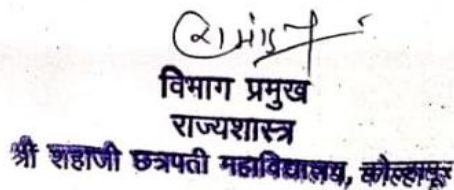 विभाग प्रमुख
राज्यशास्त्र
श्री शहाजी छत्रपती महाविद्यालय, कोल्हापूर